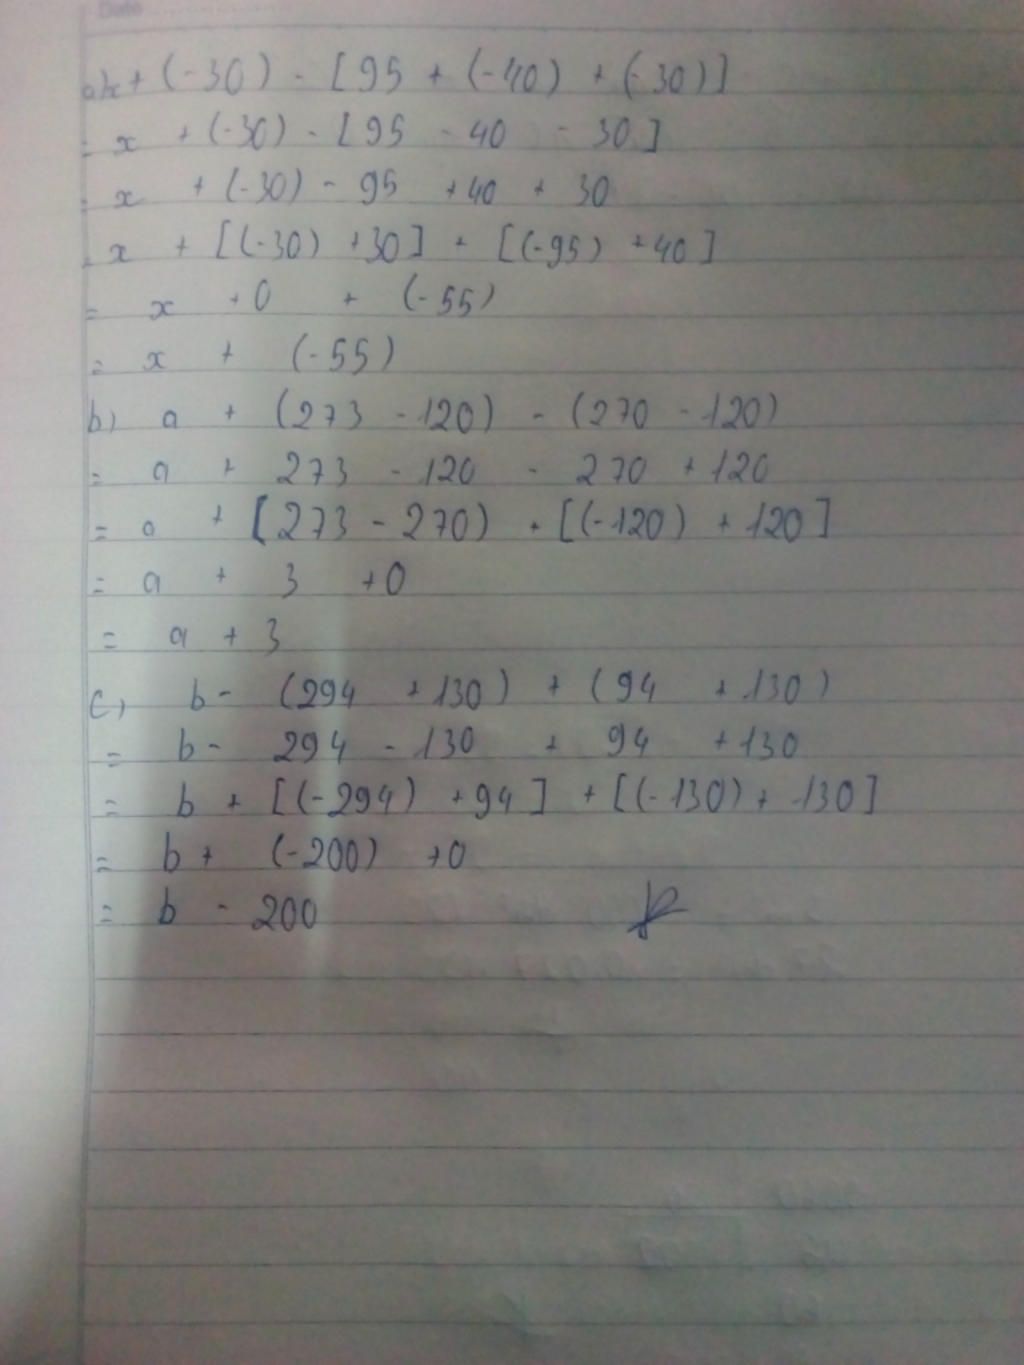 Date
a) x + (-30) - [95 + (-40) + (-30)]
= x + (-30) - [95 - 40 - 30]
= x + (-30) - 95 + 40 + 30
= x + [(-30) + 30] + [(-95) + 40]
= x + 0 + (-55)
= x + (-55)
b) a + (273 - 120) - (270 - 120)
= a + 273 - 120 - 270 + 120
= a + [273 - 270) + [(-120) + 120]
= a + 3 + 0
= a + 3
c) b - (294 + 130) + (94 + 130)
= b - 294 - 130 + 94 + 130
= b + [(-294) + 94] + [(-130) + 130]
= b + (-200) + 0
= b - 200